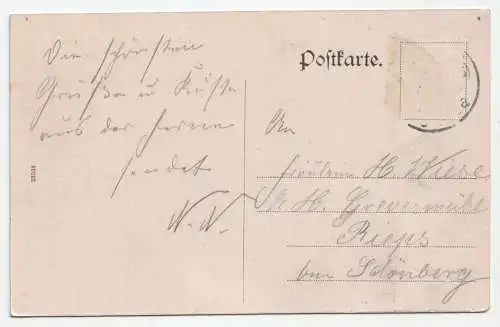 Die schönsten
Grüße u Küsse
aus der Ferne
sendet
N. N.
Postkarte.
An
Fräulein H. Wiese
H. Grevesmühl
Rieps
bei Schönberg